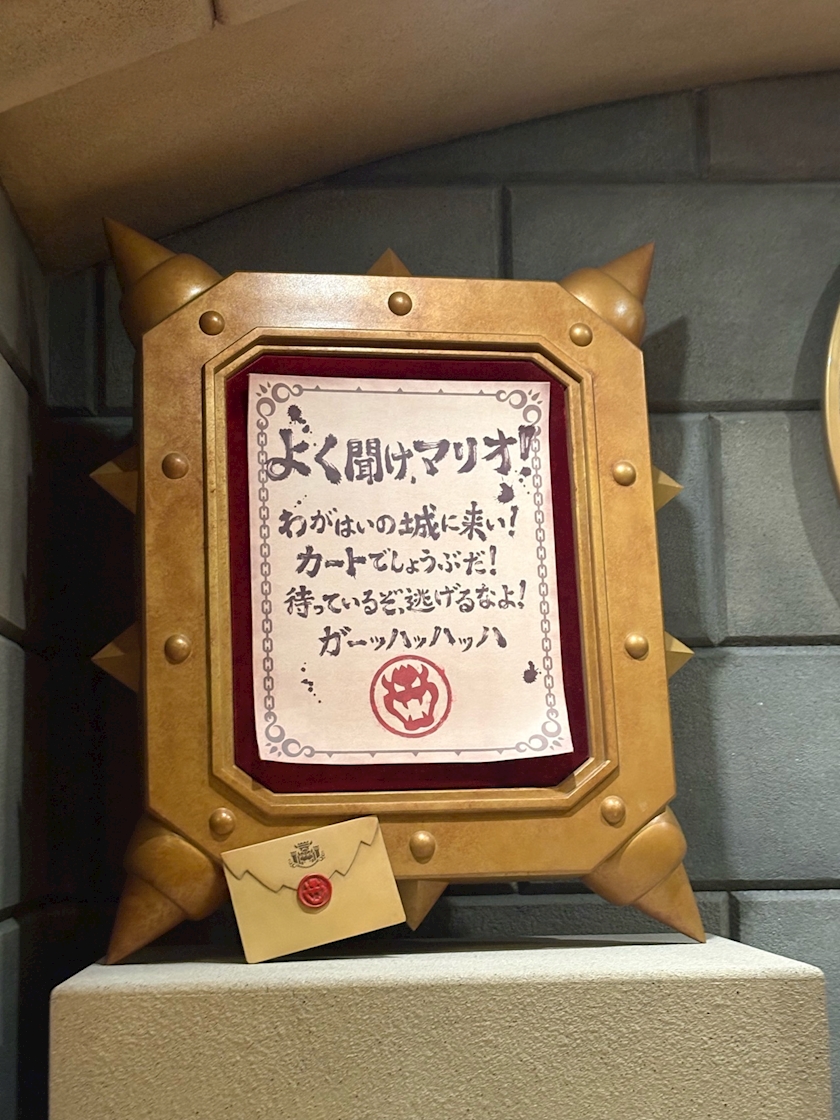 よく聞け、マリオ!
わがはいの城に来い!
カートでしょうぶだ!
待っているぞ、逃げるなよ!
ガーッハッハッハッハ